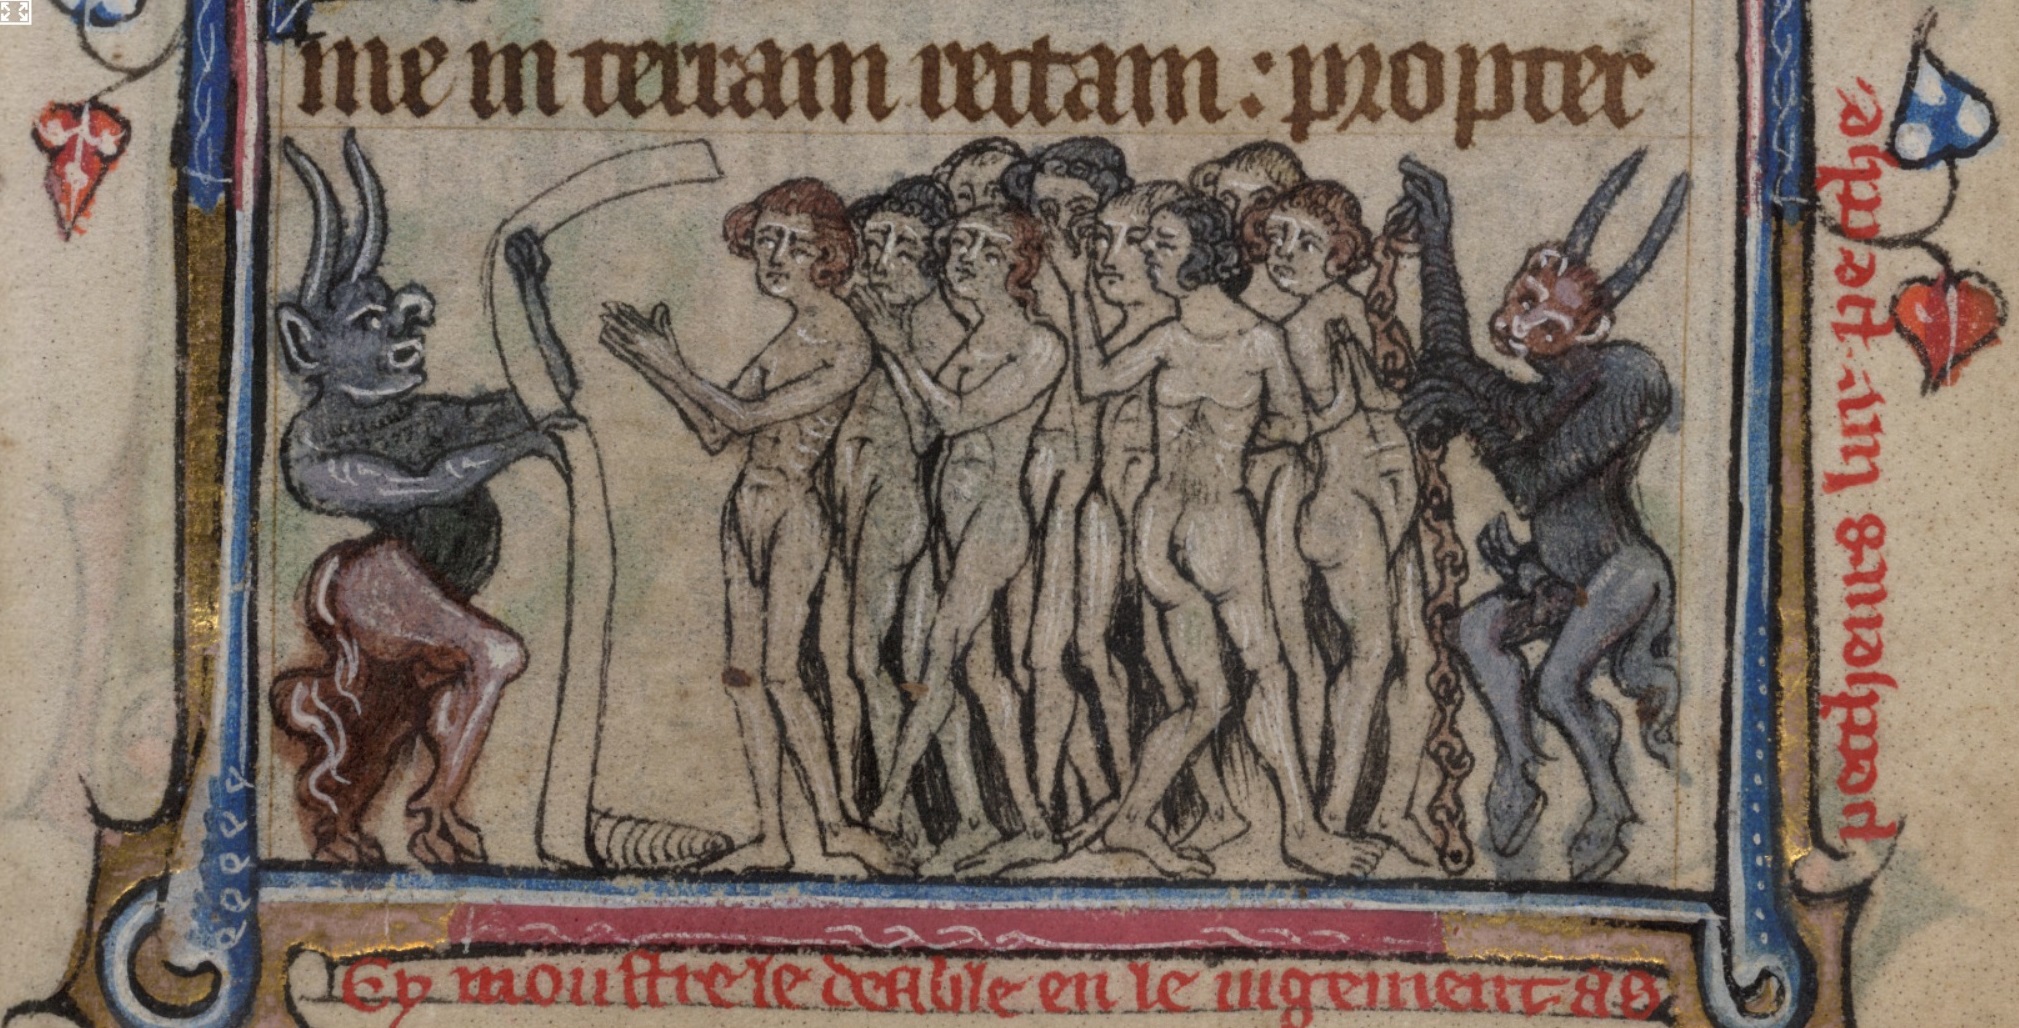 me in terram rectam : propter
Cy moustre le deable en le iugement as
peccheurs lur pecche